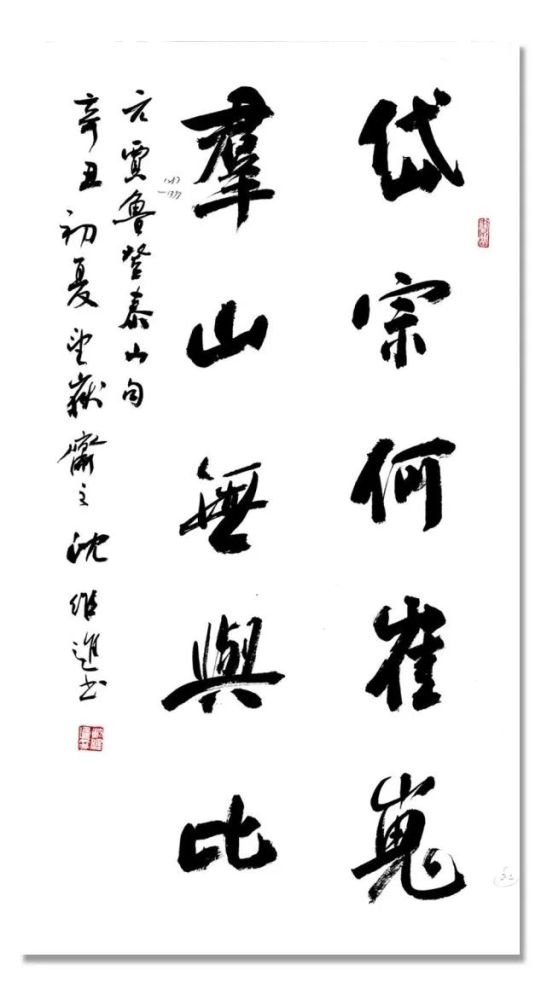 岱宗何崔嵬
羣山無與比
元賈魯登泰山句
辛丑初夏望嶽齋主沈維進书